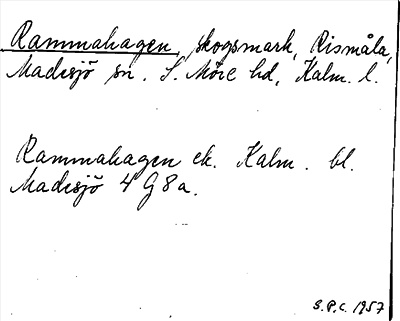 Rammahagen, skogsmark, Rismåla,
Madesjö sn. S. Möre hd, Kalm. l.
Rammahagen ek. Kalm. bl.
Madesjö 4 G 8 a.
S.P.C. 1957